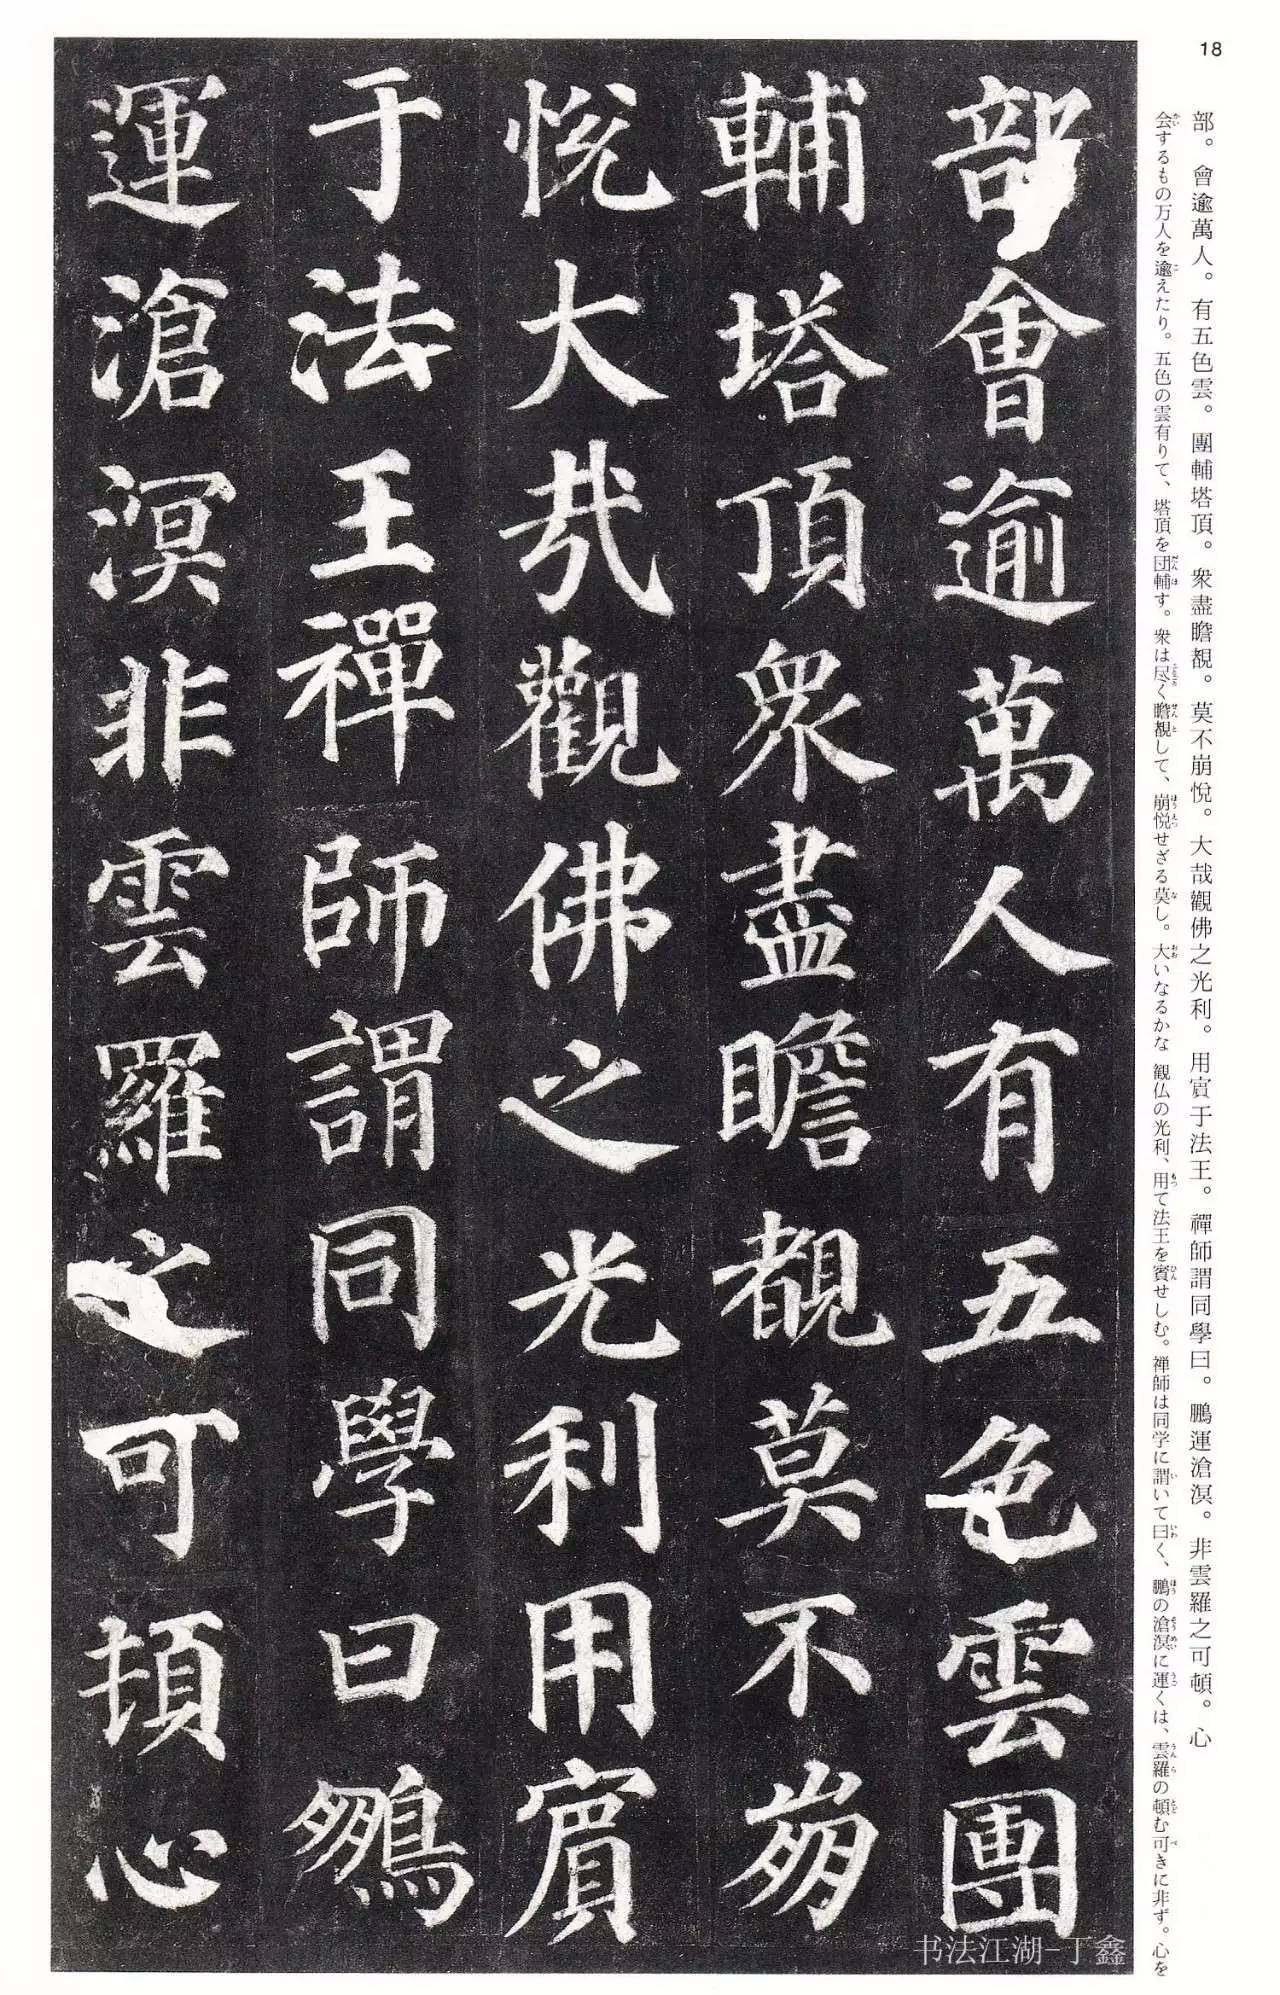 18
部。會逾萬人。有五色雲。團輔塔頂。衆盡瞻覩。莫不崩悅。大哉觀佛之光利。用賓于法王。禪師謂同學曰。鵬運滄溟。非雲羅之可頓。心
会するもの万人を逾えたり。五色の雲有りて、塔頂を団輔す。衆は尽く瞻覩して、崩悦せざる莫し。大いなるかな 観仏の光利、用て法王を賓せしむ。禅師は同学に謂いて曰く、鵬の滄溟に運くは、雲羅の頓む可きに非ず。心を
部會逾萬人有五色雲團
輔塔頂衆盡瞻覩莫不崩
悅大哉觀佛之光利用賓
于法王禪師謂同學曰鵬
運滄溟非雲羅之可頓心
书法江湖-丁鑫